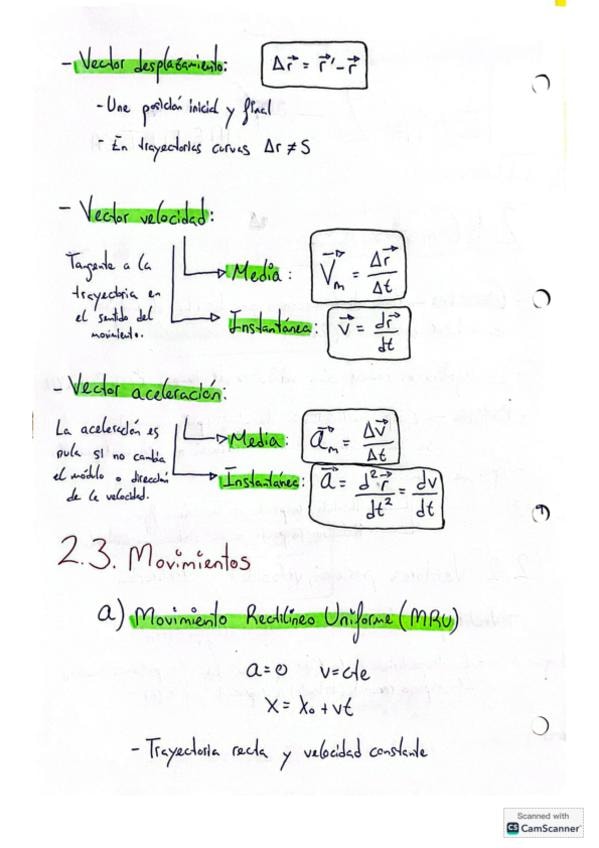 - Vector desplazamiento: Δr⃗ = r⃗' - r⃗
- Une posición inicial y final
- En trayectorias curvas Δr ≠ S
- Vector velocidad:
Tangente a la
trayectoria en
el sentido del
movimiento.
Media: V⃗m = Δr⃗/Δt
Instantánea: v⃗ = dr⃗/dt
- Vector aceleración:
La aceleración es
nula si no cambia
el módulo o dirección
de la velocidad.
Media: a⃗m = Δv⃗/Δt
Instantánea: a⃗ = d²r⃗/dt² = dv/dt
2.3. Movimientos
a) Movimiento Rectilíneo Uniforme (MRU)
a=0 v=cte
x = x₀ + vt
- Trayectoria recta y velocidad constante
Scanned with
CS CamScanner